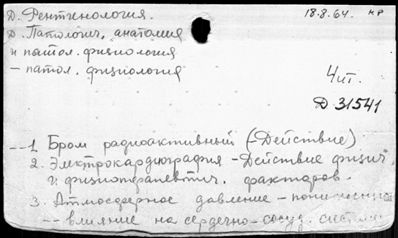 Д. Рентгенология.
18.8.64. нр
Д. Патологич. анатомия
и патол. физиология
— патол. физиология
4 чит.
Д 31541
--1. Бром радиоактивный (-Действие)
2. Электрокардиография - Действие физич.
и физиотерапевтич. факторов.
3. Атмосферное давление -
-- влияние на сердечно-сосуд. систему